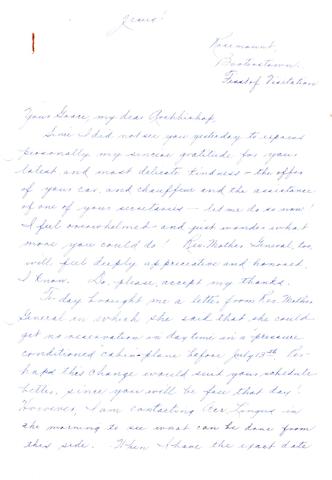 Jesus!
Rosemount,
Booterstown.
Feast of Visitation
Your Grace, my dear Archbishop,
Since I did not see you yesterday to express
personally my sincere gratitude for your
latest and most delicate kindness – the offer
of your car, and chauffeur and the assistance
of one of your secretaries – let me do so now!
I feel overwhelmed – and just wonder what
more you could do! Rev. Mother General, too,
will feel deeply appreciative and honored
I know. Do, please accept my thanks.
To-day brought me a letter from Rev. Mother
General in which she said that she could
get no reservation in daytime in a "pressure
conditioned cabin-plane before July 13th. Per-
haps this change would suit your schedule
better, since you will be free that day!
However, I am contacting Aer Lingus in
the morning to see what can be done from
this side. When I have the exact date